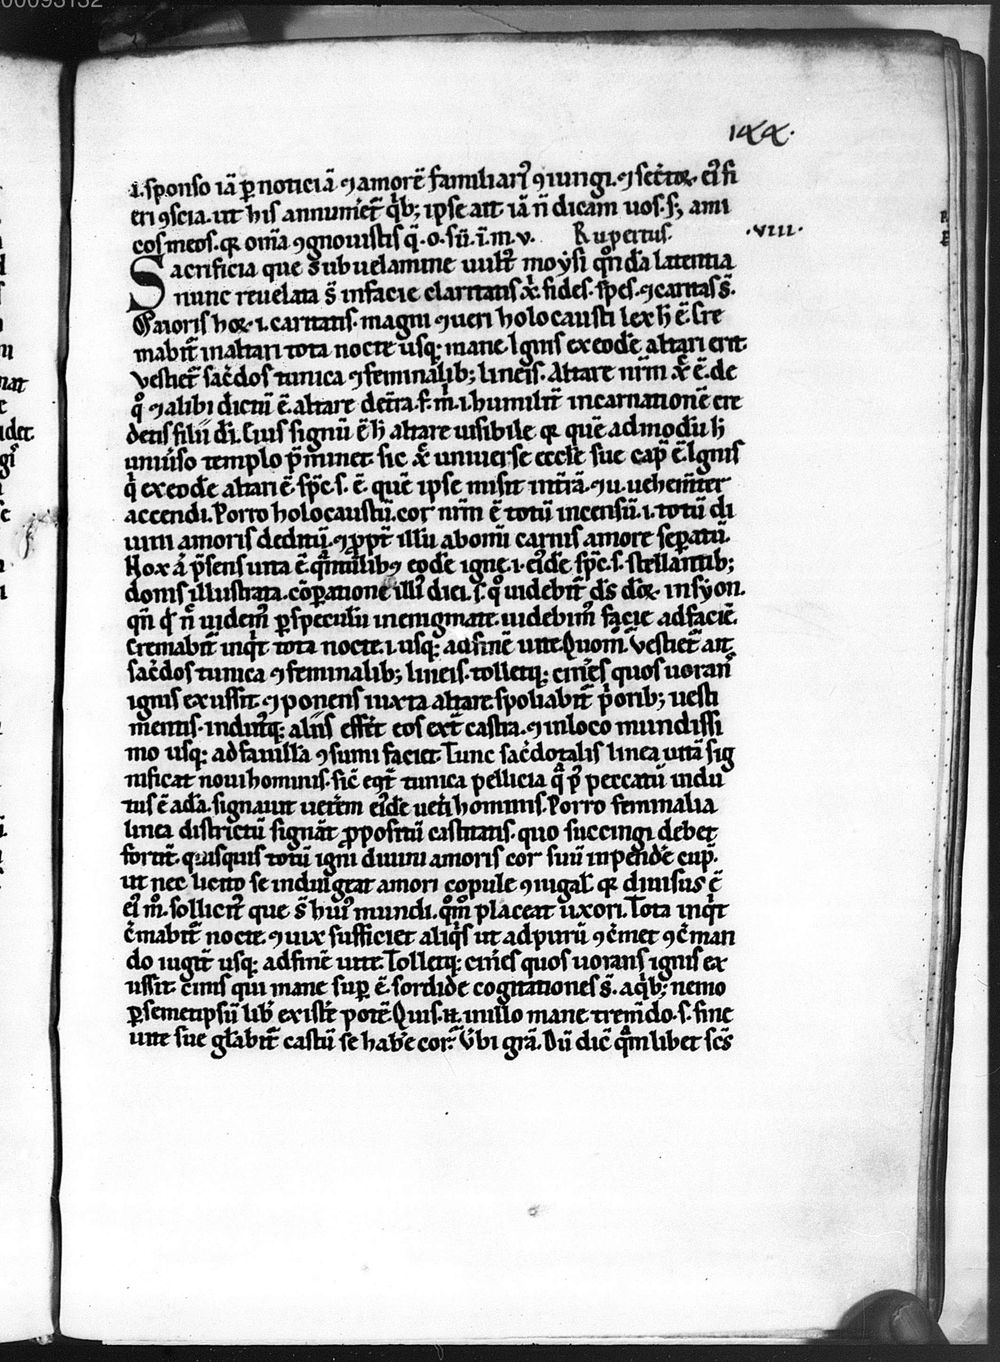 00095132
144.
.i. sponso iā ꝑ noticiā ⁊ amorē familiariꝰ ꝯiungi. ⁊ secͣtoꝝ eiꝰ fi
eri ꝯscia. ut his annumēt qͥbꝫ ipse ait iā n̄ dicam uos. s; ami
cos meos. qꝛ om̄ia ꝯgnouistis q̄. o. sū. ī. m̄. v. Rupertus. .viiii.
Sacrificia que sub uelamine uult moysi qͦndā latentia
nunc reuelata s̄ in facie claritatis xp̄i fides. spes. ⁊ caritas s̄.
Maioris hoꝝ .i. caritatis. magni ⁊ ueri holocausti lex h̄ ē. Cre
mabit᷑ in altari tota nocte usqꝫ mane. Ignis ex eodē altari erit.
Vestiet᷑ sac̄dos tunica ⁊ feminalibꝫ lineis. Altare nr̄m xp̄c ē. de
qͦ ⁊ alibi dictū ē. altare de tr̄a. f. m. i. humilit᷑ incarnationē cre
detis filii dī. Cuius signū ē h̄ altare uisibile qꝛ quē admodū h̄
uniūso templo p̄minet. sic xp̄c uniuerse eccl̄e sue cap̄ ē. Ignis
qͥ ex eodē altari ē. sp̄c. s. ē. quē ipse misit in tr̄ā. ⁊ u. uehem̄ter
accendi. Porro holocaustū. cor nr̄m ē totū incensū .i. totū di
uini amoris deditū. ⁊ ꝓpt᷑ illū ab omni carnis amore seꝑatū.
Nox aͥ p̄sens uita ē qͣmuis libꝫ eodē igne .i. eiꝰdē sp̄c. s. stellantibꝫ
donis illustrata. cōꝑatione illiꝰ diei. s. qͦ uidebit᷑ ds̄ deoꝝ in syon.
qn̄ qd̄ n̄ uidem̄ ꝑ speculū in enigmate. uidebimꝰ facie ad faciē.
Cremabit᷑ inqͥt tota nocte .i. usqꝫ ad finē uite. Quom̄. Vestiet᷑ ait
sac̄dos tunica ⁊ feminalibꝫ lineis. tolletqꝫ cin̄es quos uorans
ignis exussit. ⁊ ponens iuxta altare spoliabit᷑ p̄oribꝫ uesti
mentis. indutqꝫ aliis effēt eos extͣ castra. ⁊ in loco mundissi
mo usqꝫ ad fauillā ꝯsumi faciet. Tunc sac̄dotalis linea uitā sig
nificat noui hominis. sic̄ eqͦt tunica pellicia qͣ pͥ peccatū indu
tus ē adā. signauit uet̄em eiꝰdē uet̄i hominis. Porro feminalia
linea districtū signāt ꝓpositū castitatis. quo succingi debet
fortit᷑. quisquis totū igni diuini amoris cor suū inpendē cupͥ.
ut nec licito se indulgeat amori copule ꝯiugal̄. qꝛ diuisus ē
eiꝰ mͦ. sollicitꝰ que s̄ huiꝰ mundi. qͦm placeat uxori. Tota inqͥt
c̄mabit᷑ nocte. ⁊ uix sufficiet aliqͥs ut ad purū ꝯc̄met ꝯc̄man
do iugit᷑ usqꝫ ad finē uite. Tolletqꝫ cin̄es quos uorans ignis ex
ussit. Cinis qui mane suꝑ ē. sordide cogitationes s̄. a qͥbꝫ nemo
ꝑ semetipsū libꝰ existē potē. Quis. n̄. in illo mane trem̄do. s. fine
uite sue gl̄abit᷑ castū se hab̄e cor. Vbi grā. Dū dic̄ qͣmlibet sc̄s